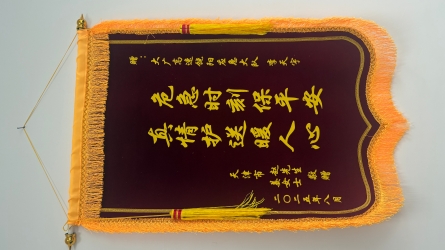 赠：大广高速饶阳应急大队 李天宇
危急时刻保平安
真情护送暖人心
天津市 赵先生 姜女士 敬赠
二〇二五年八月